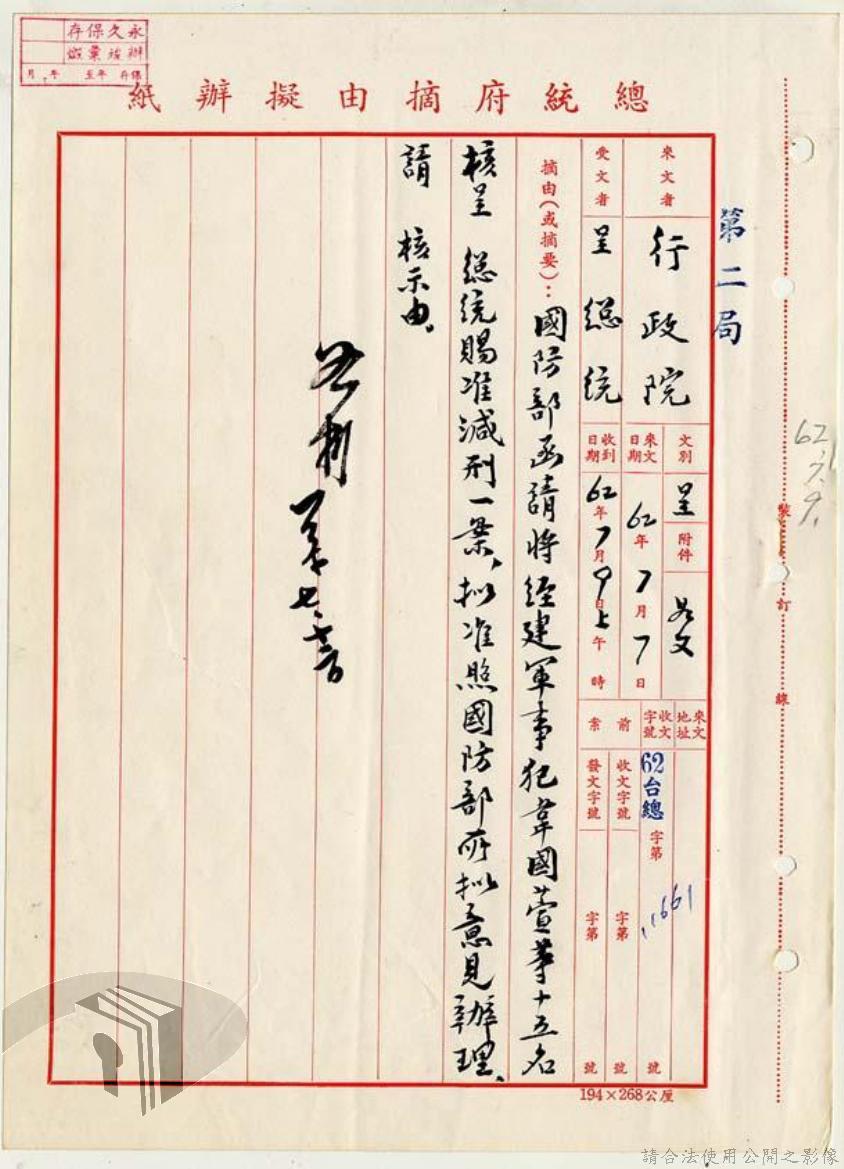 永久保存
總統府摘由擬辦紙
第二局
來文者
行政院
受文者
呈總統
文別
呈
附件
如文
來文日期
62年7月7日
收到日期
62年7月9日上午 時
來文地址
收文字號
62台總字第 號
前案
收文字號 字第 號
發文字號 字第 號
摘由(或摘要):國防部函請將經建軍事犯韋國萱等十五名
核呈 總統賜准減刑一案、擬准照國防部所擬意見辦理、
請 核示由。
裝
訂
線
194×268公厘
請合法使用公開之影像